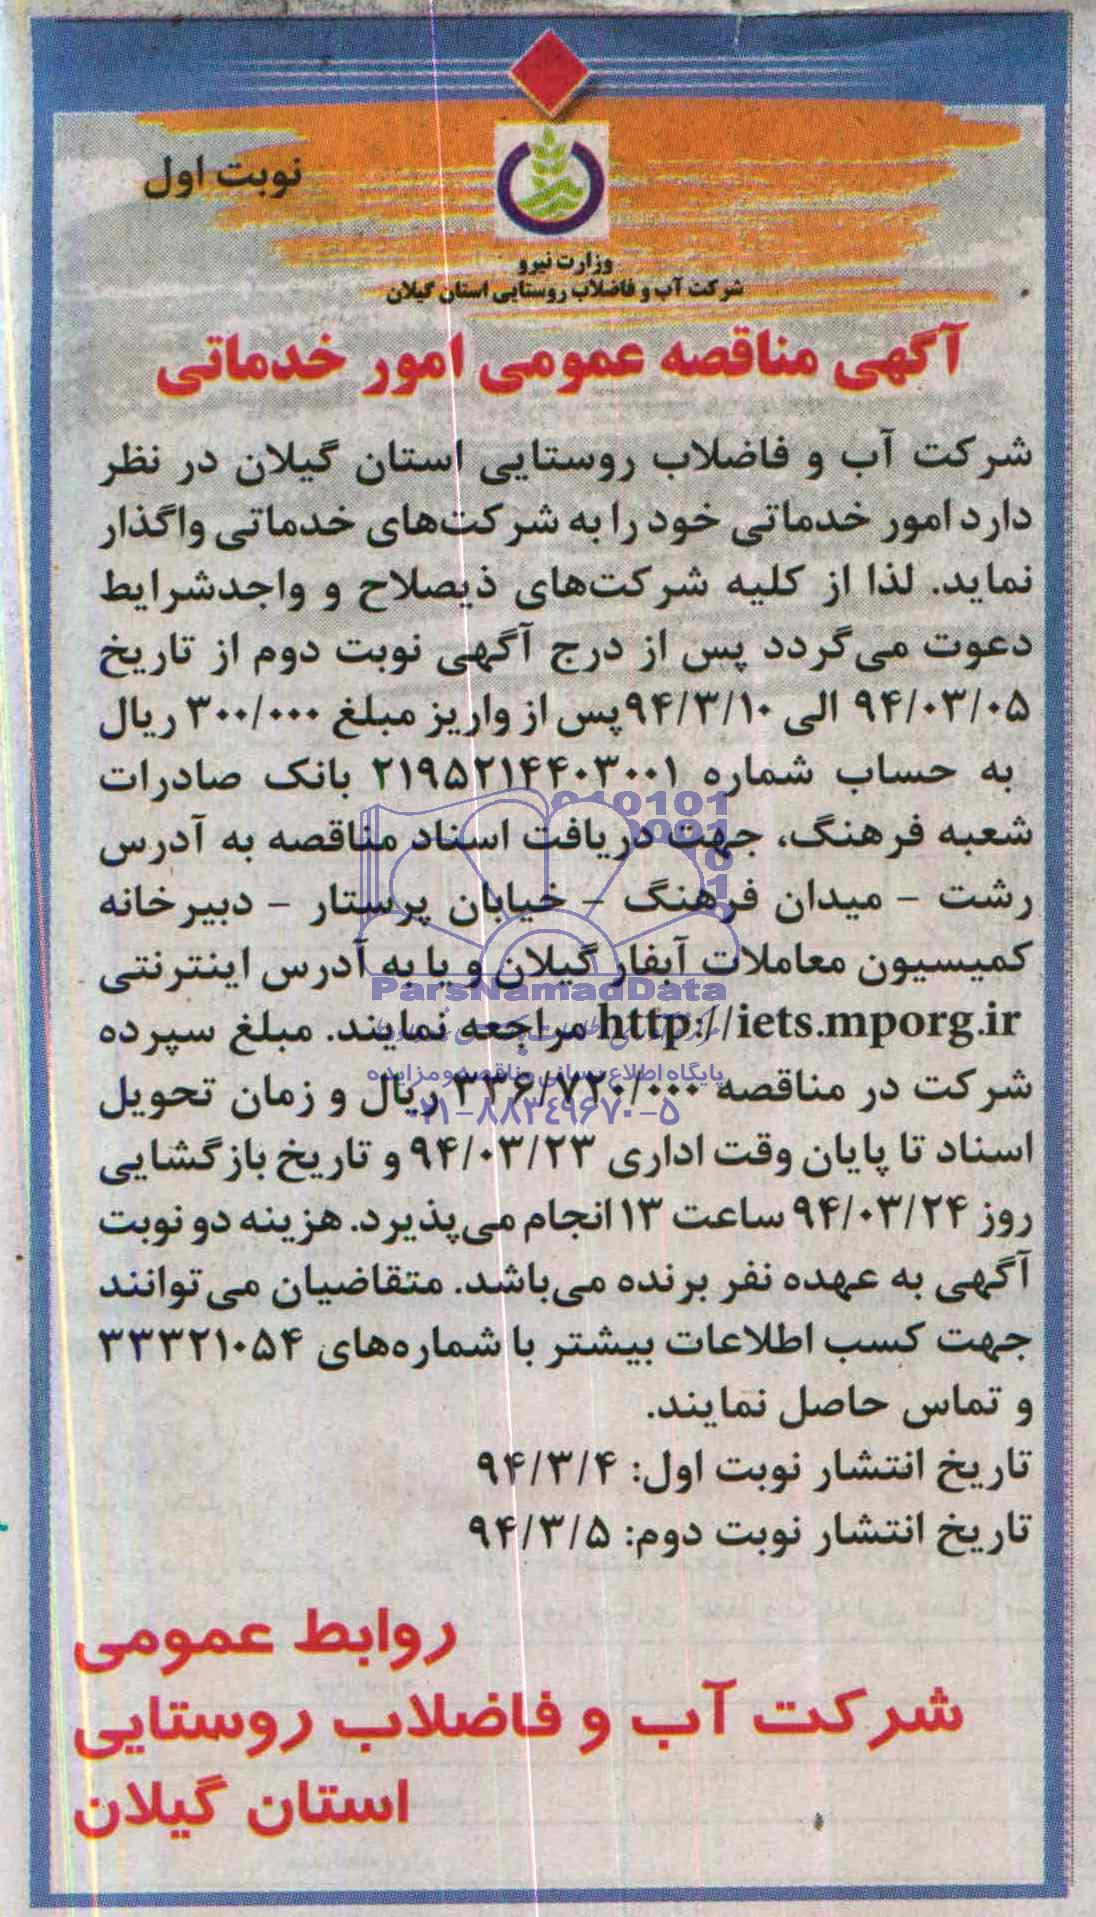 نوبت اول
وزارت نیرو
شرکت آب و فاضلاب روستایی استان گیلان
آگهی مناقصه عمومی امور خدماتی
شرکت آب و فاضلاب روستایی استان گیلان در نظر
دارد امور خدماتی خود را به شرکت‌های خدماتی واگذار
نماید. لذا از کلیه شرکت‌های ذیصلاح و واجدشرایط
دعوت می‌گردد پس از درج آگهی نوبت دوم از تاریخ
۹۴/۰۳/۰۵ الی ۹۴/۳/۱۰ پس از واریز مبلغ ۳۰۰/۰۰۰ ریال
به حساب شماره ۲۱۹۵۲۱۴۴۰۳۰۰۱ بانک صادرات
شعبه فرهنگ، جهت دریافت اسناد مناقصه به آدرس
رشت - میدان فرهنگ - خیابان پرستار - دبیرخانه
کمیسیون معاملات آبفار گیلان و یا به آدرس اینترنتی
http://iets.mporg.ir مراجعه نمایند. مبلغ سپرده
شرکت در مناقصه ۳۳۶/۷۲۰/۰۰۰ ریال و زمان تحویل
اسناد تا پایان وقت اداری ۹۴/۰۳/۲۳ و تاریخ بازگشایی
روز ۹۴/۰۳/۲۴ ساعت ۱۳ انجام می‌پذیرد. هزینه دو نوبت
آگهی به عهده نفر برنده می‌باشد. متقاضیان می‌توانند
جهت کسب اطلاعات بیشتر با شماره‌های ۳۳۳۲۱۰۵۴
و تماس حاصل نمایند.
تاریخ انتشار نوبت اول: ۹۴/۳/۴
تاریخ انتشار نوبت دوم: ۹۴/۳/۵
روابط عمومی
شرکت آب و فاضلاب روستایی
استان گیلان
010101
ParsNamadData
پایگاه اطلاع رسانی مناقصه و مزایده
۰۲۱-۸۸۳۴۹۶۷۰-۵